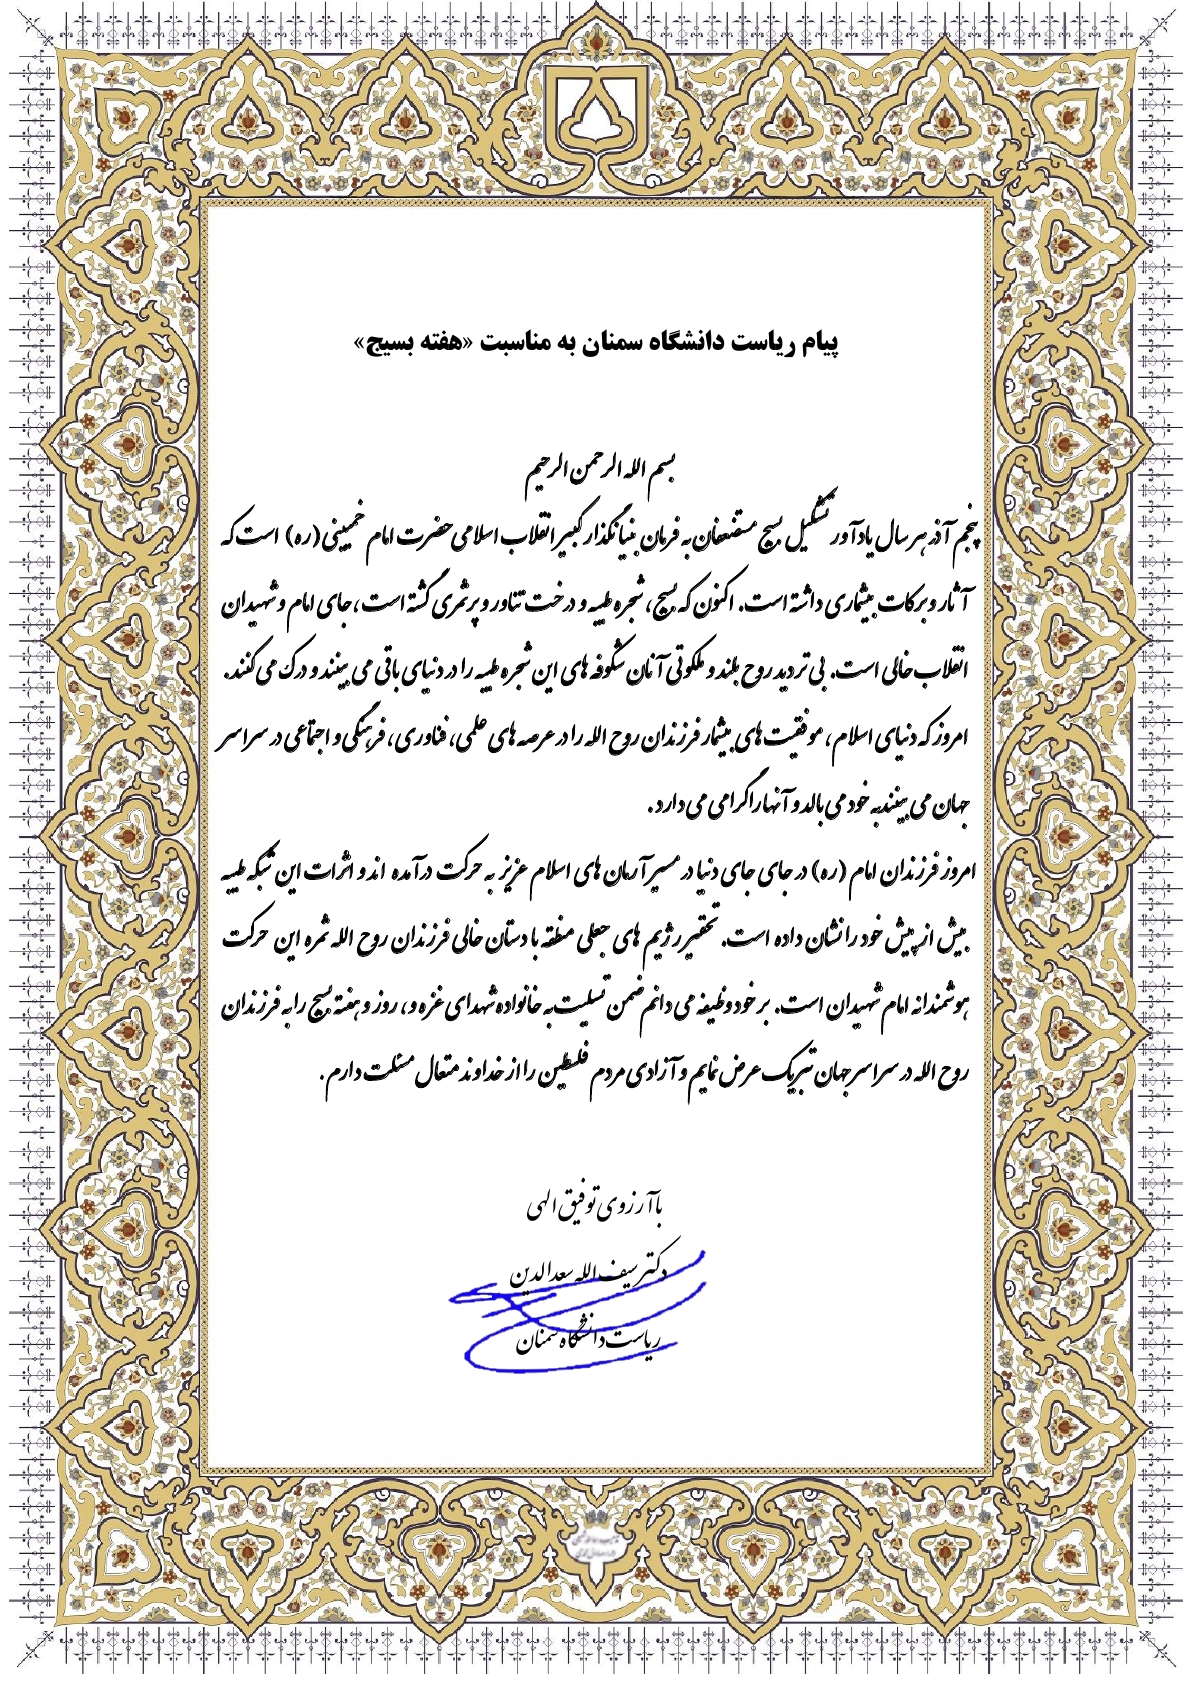 پیام ریاست دانشگاه سمنان به مناسبت «هفته بسیج»
بسم الله الرحمن الرحیم
پنجم آذر هر سال یادآور تشکیل بسیج مستضعفان به فرمان بنیانگذار کبیر انقلاب اسلامی حضرت امام خمینی (ره) است که
آثار و برکات بیشماری داشته است. اکنون که بسیج، شجره طیبه و درخت تناور و پرثمری گشته است، جای امام و شهیدان
انقلاب خالی است. بی تردید روح بلند و ملکوتی آنان شکوفه های این شجره طیبه را در دنیای باقی می بینند و درک می کنند.
امروز که دنیای اسلام، موفقیت های بیشمار فرزندان روح الله را در عرصه های علمی، فناوری، فرهنگی و اجتماعی در سراسر
جهان می بیند به خود می بالد و آنها را گرامی می دارد.
امروز فرزندان امام (ره) در جای جای دنیا در مسیر آرمان های اسلام عزیز به حرکت درآمده اند و اثرات این شبکه طیبه
بیش از پیش خود را نشان داده است. تحقیر رژیم های جعلی منطقه با دستان خالی فرزندان روح الله ثمره این حرکت
هوشمندانه امام شهیدان است. بر خود وظیفه می دانم ضمن تسلیت به خانواده شهدای غزه و، روز و هفته بسیج را به فرزندان
روح الله در سراسر جهان تبریک عرض نمایم و آزادی مردم فلسطین را از خداوند متعال مسئلت دارم.
با آرزوی توفیق الهی
دکتر سیف الله سعدالدین
ریاست دانشگاه سمنان